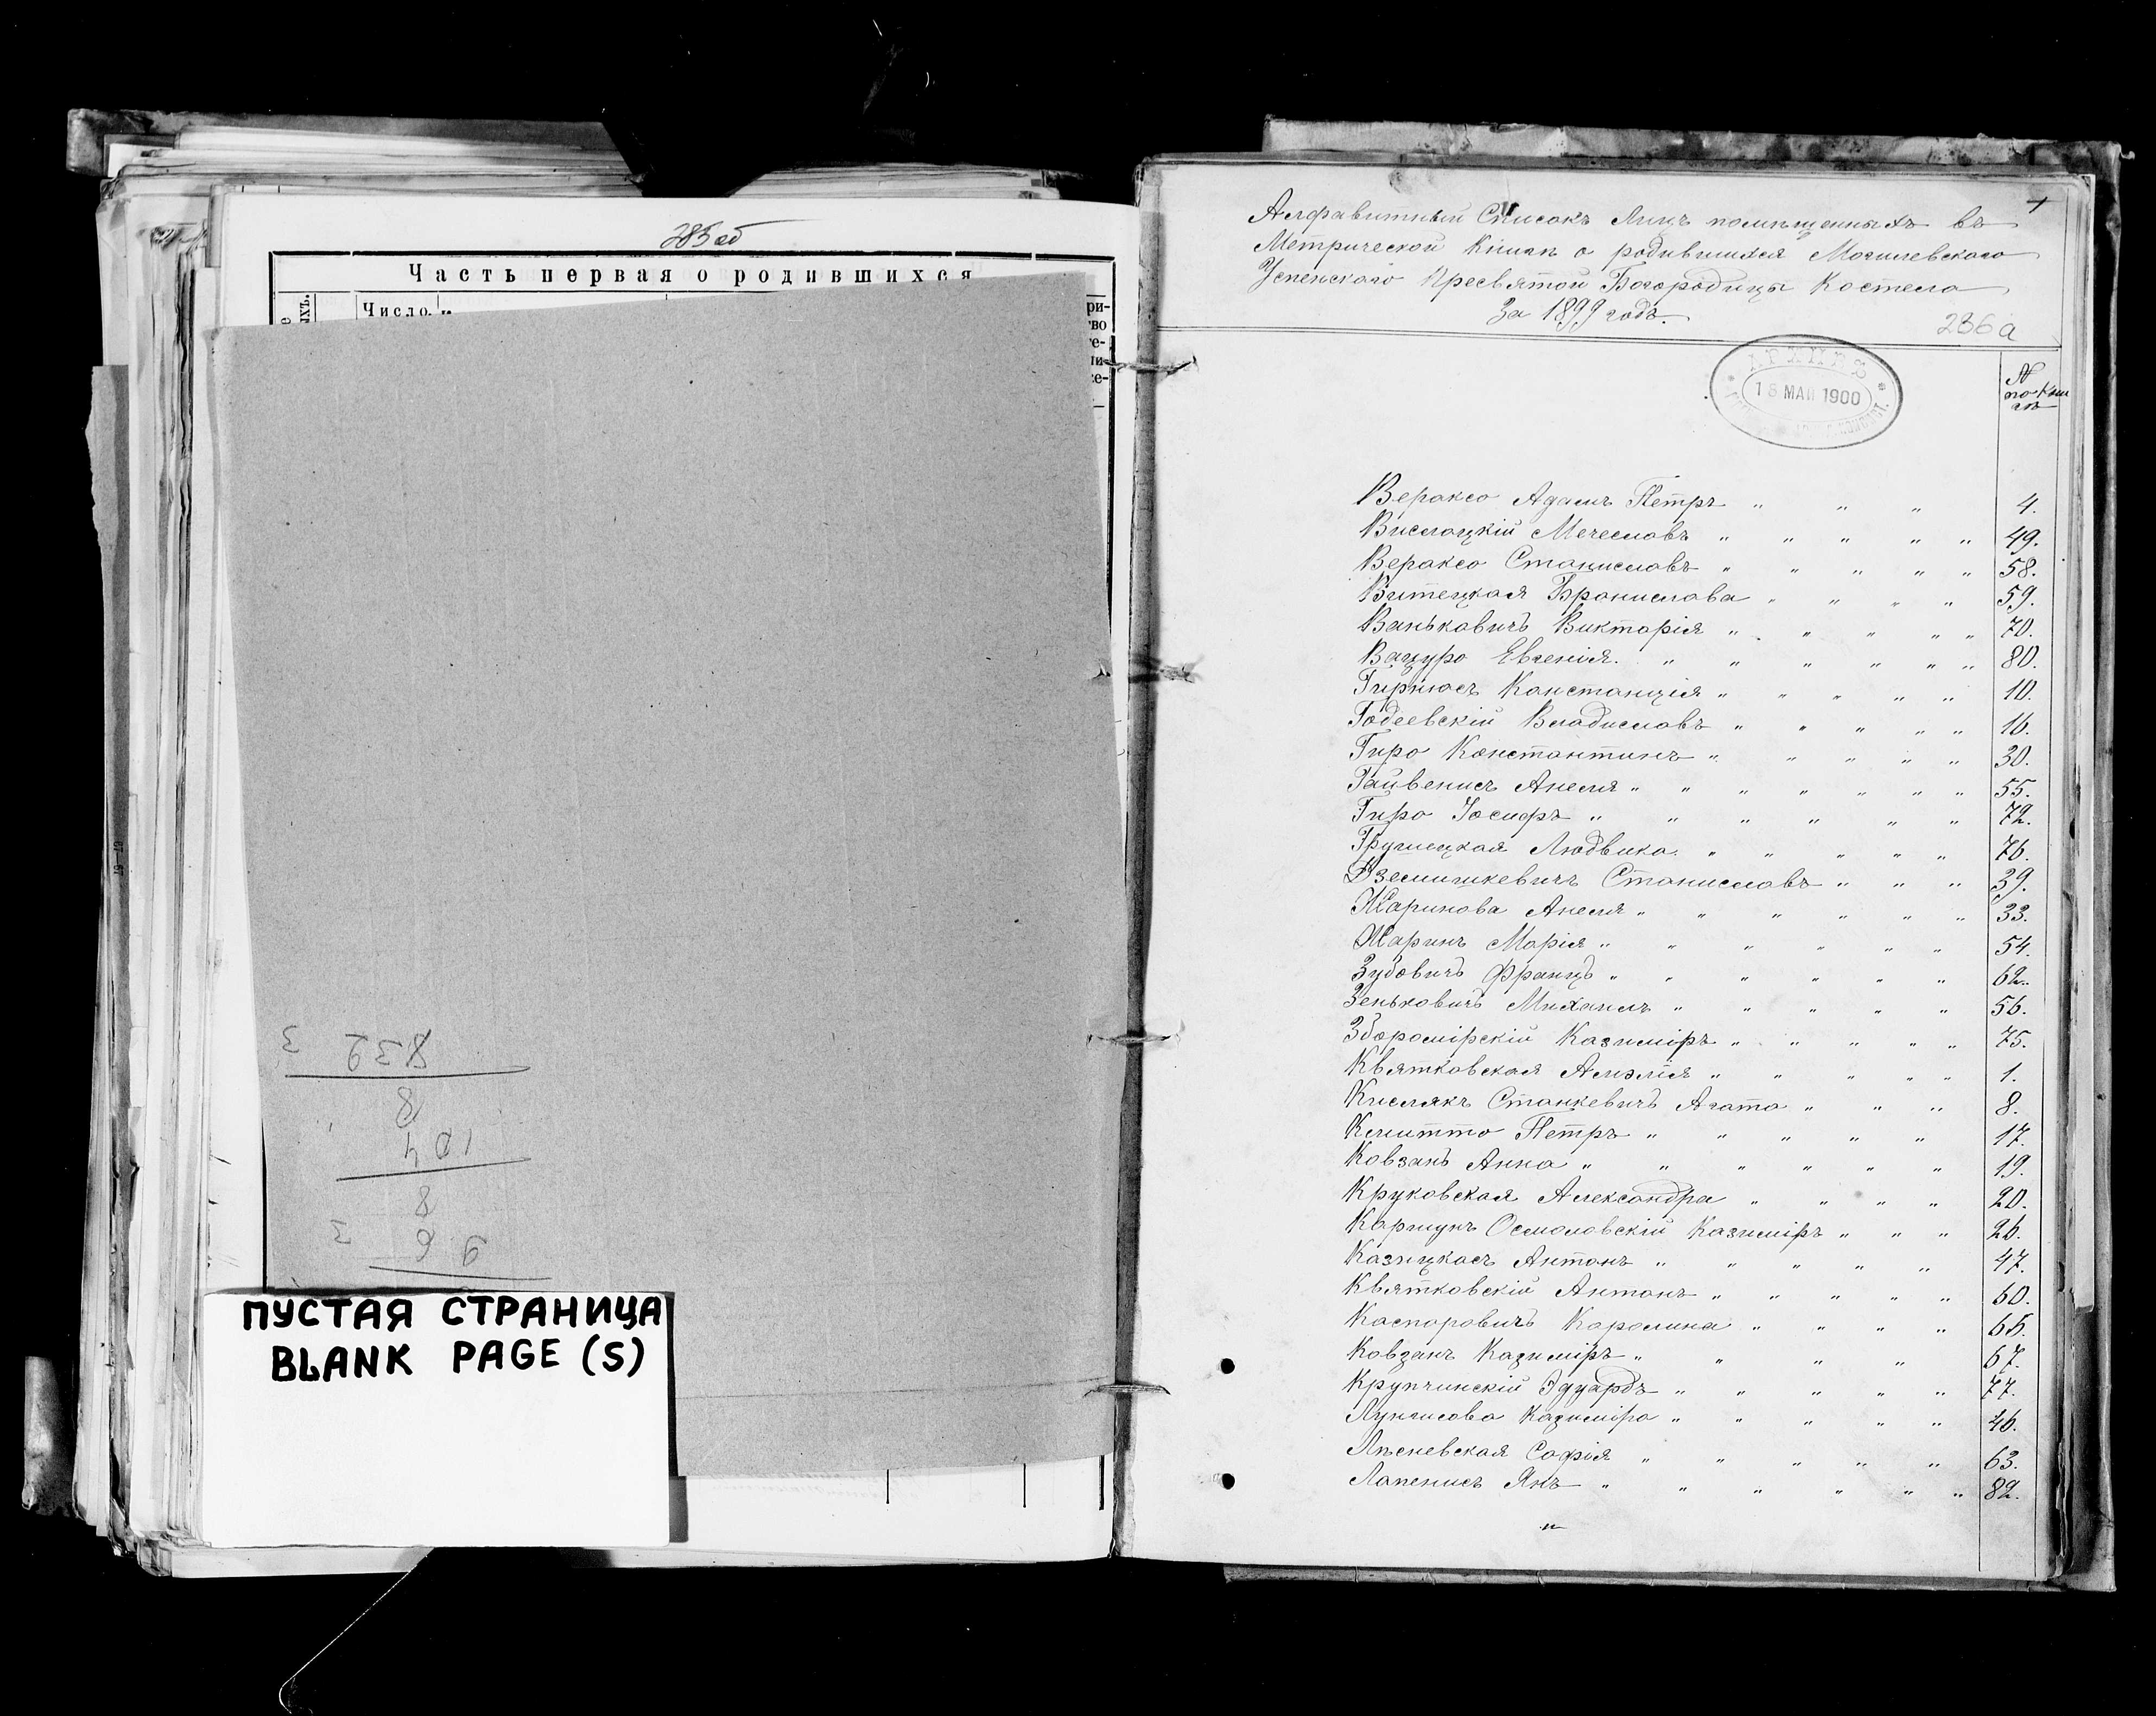 285 об
Часть первая о родившихся
Число.
ри-
во
е-
ли-
е-
832 3
8
104
8
96 3
ПУСТАЯ СТРАНИЦА
BLANK PAGE (S)
Алфавитный Списокъ Лицъ помѣщенныхъ въ
Метрической Книгѣ о родившихся Могилевскаго
Успенскаго Пресвятой Богородицы Костела
За 1899 годъ.
236 а
АРХИВЪ
18 МАЙ 1900
№
по Кни
гѣ
Вераксо Адамъ Петръ " " " 4.
Вислоцкій Мечеславъ " " " " " 49.
Вераксо Станиславъ " " " " " 58.
Витецкая Бронислава " " " " 59.
Ваньковичъ Викторія " " " " " 70.
Вацуро Евгенія. " " " " " " 80.
Гирнюсъ Констанція " " " " " 10.
Годеевскій Владиславъ " " " " " 16.
Гиро Константинъ " " " " " 30.
Гайвенисъ Анеля " " " " " " " 55.
Гиро Іосифъ " " " " " " 72.
Грушецкая Людвика. " " " " " 76.
Дземишкевичъ Станиславъ " " " 39.
Жаринова Анеля " " " " " " 33.
Жаринъ Марія " " " " " " 54.
Зубовичъ Францъ " " " " " " 62.
Зеньковичъ Михаилъ " " " " " 56.
Збромірскій Казиміръ " " " " " 75.
Квятковская Амэлія " " " " " 1.
Кислякъ Станкевичъ Агата " " " 8.
Кмитто Петръ " " " " " 17.
Ковзанъ Анна " " " " " " 19.
Круковская Александра " " " " 20.
Каршунъ Осмоловскій Казиміръ " " " 26.
Казицкасъ Антонъ " " " " " 47.
Квятковскій Антонъ " " " " " 60.
Каспоровичъ Каролина " " " " 65.
Ковзанъ Казиміръ " " " " 67.
Крупчинскій Эдуардъ " " " " " 77.
Лунгисова Казиміра " " " " " 46.
Лѣсневская Софія " " " " " 63.
Лапенисъ Янъ " " " " " " 82.